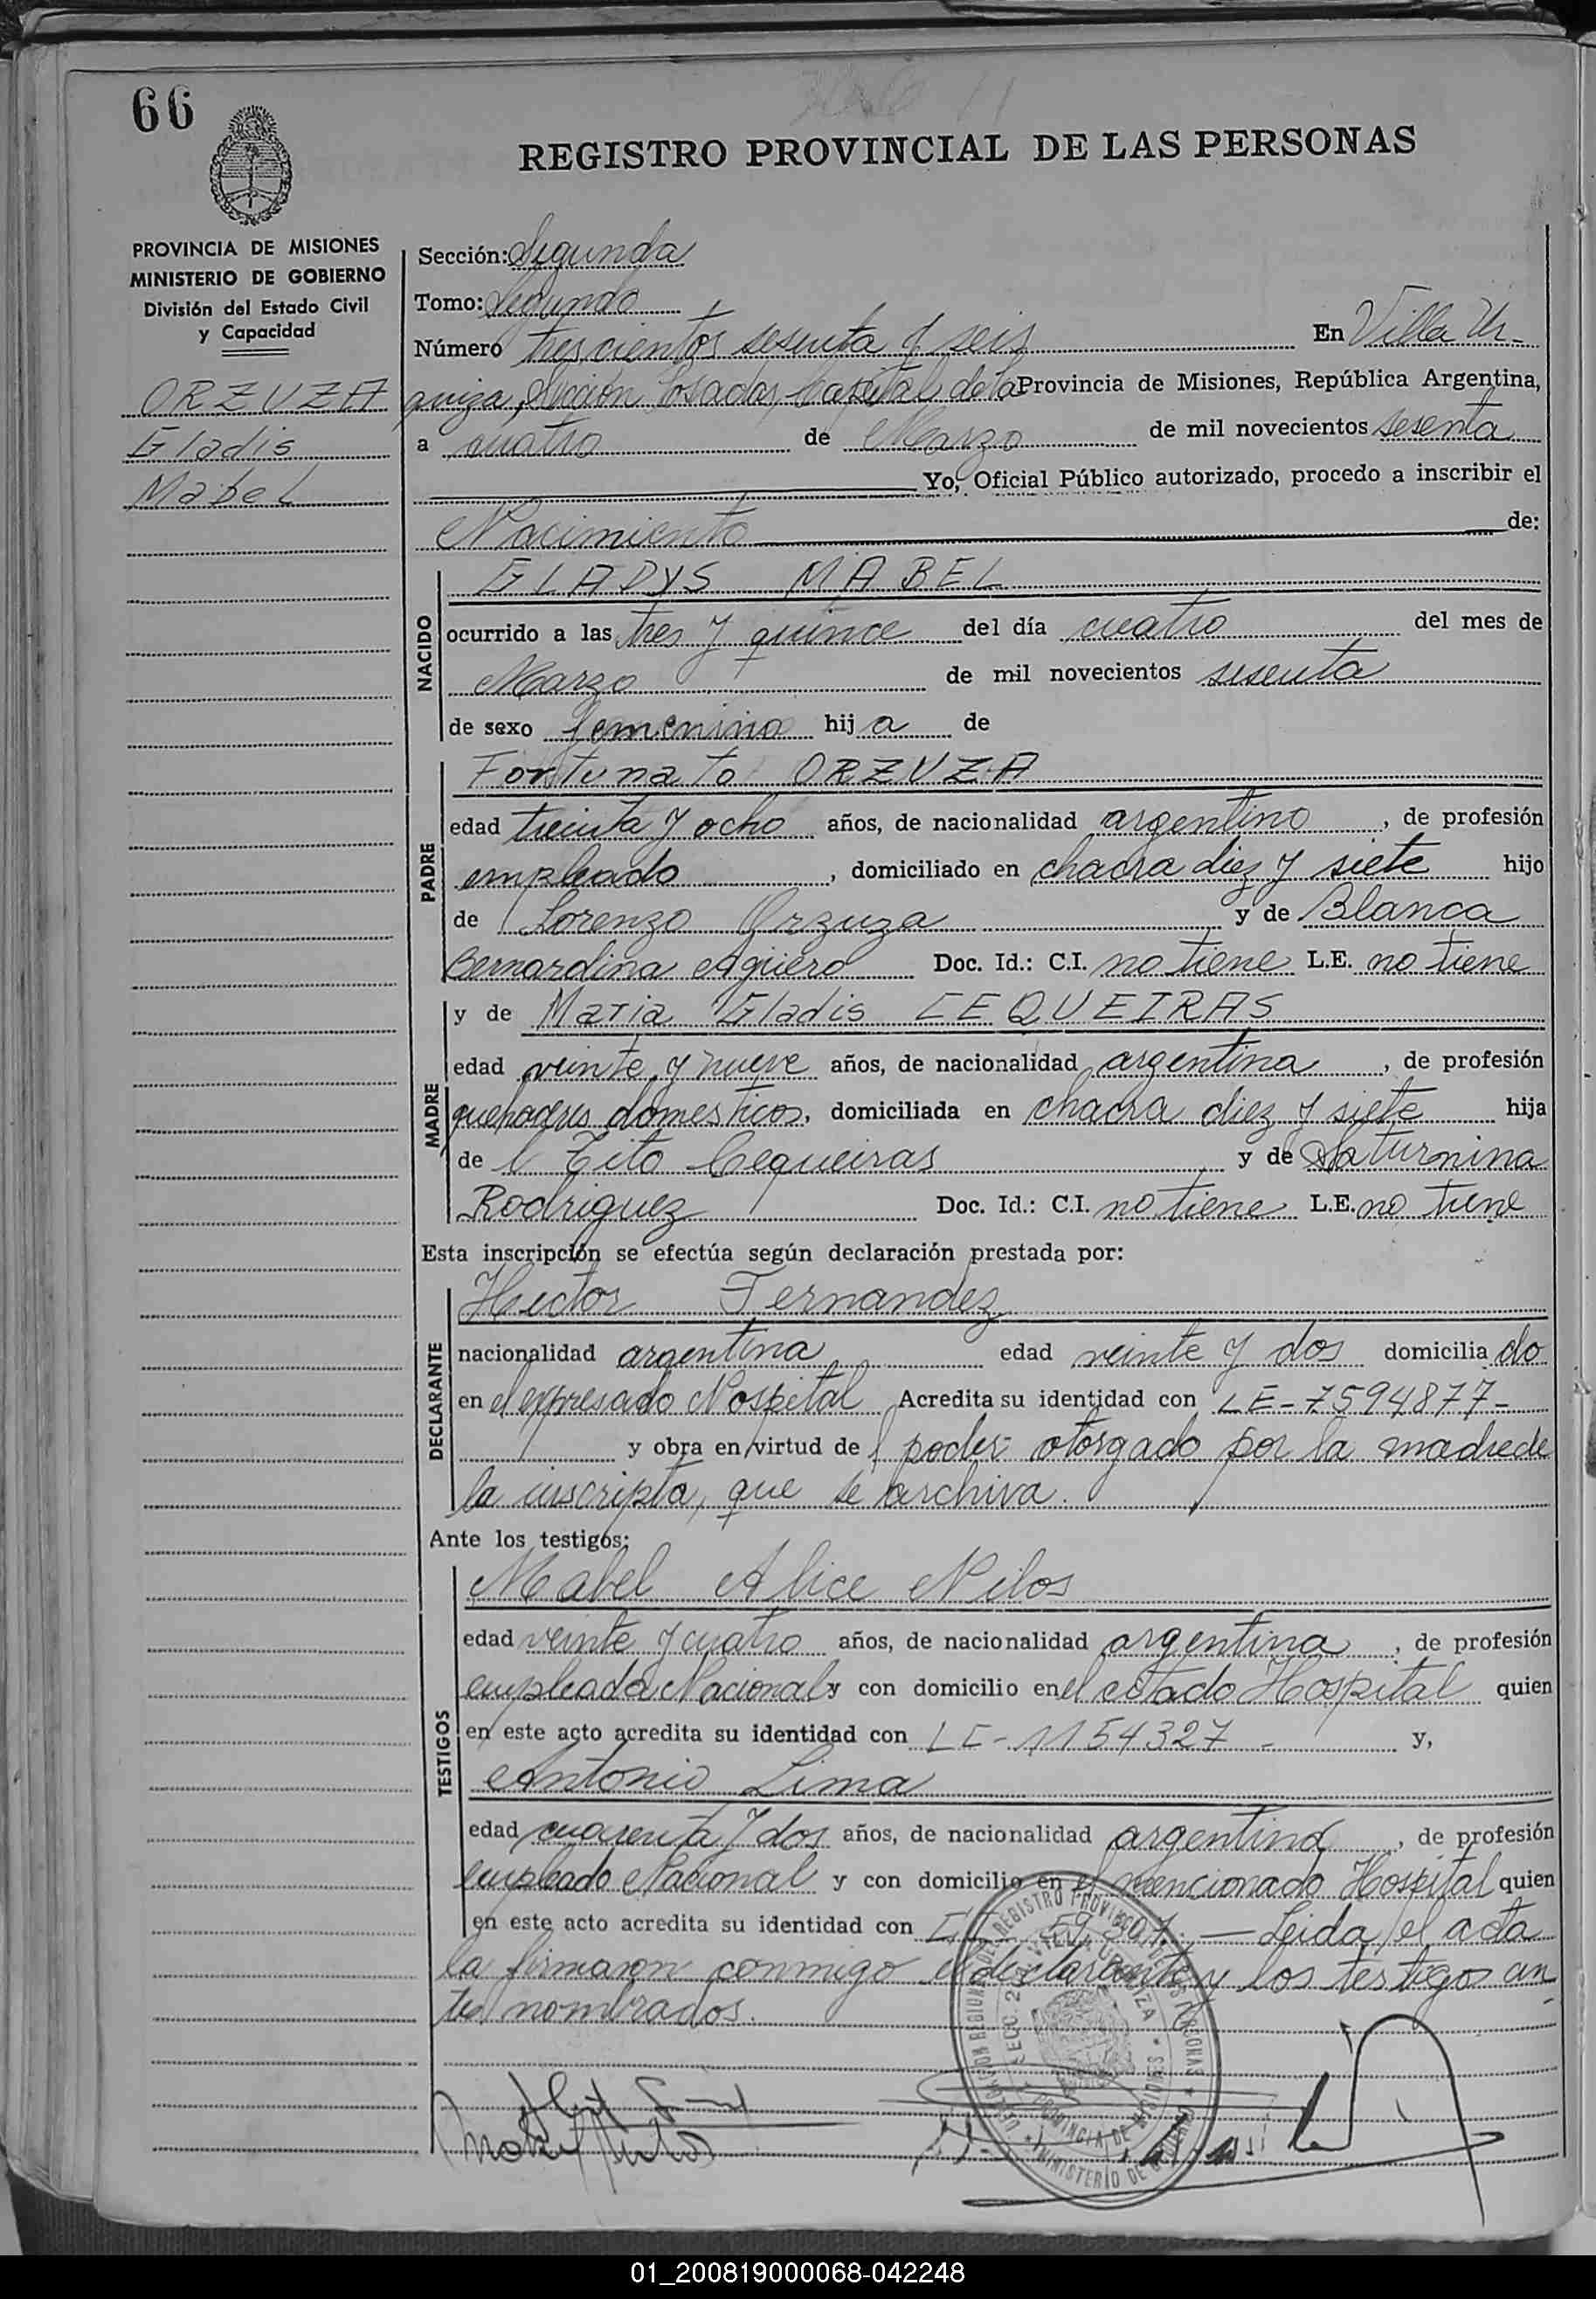 66
REGISTRO PROVINCIAL DE LAS PERSONAS
PROVINCIA DE MISIONES
MINISTERIO DE GOBIERNO
División del Estado Civil
y Capacidad
ORZUZA
Gladis
Mabel
Sección: Segunda
Tomo: Segundo
Número trescientos sesenta y seis En Villa Ur-
quiza, Sección Posadas, Capital de la Provincia de Misiones, República Argentina,
a cuatro de Marzo de mil novecientos sesenta
Yo, Oficial Público autorizado, procedo a inscribir el
Nacimiento de:
NACIDO
GLADYS MABEL
ocurrido a las tres y quince del día cuatro del mes de
Marzo de mil novecientos sesenta
de sexo femenino hija de
PADRE
Fortunato ORZUZA
edad treinta y ocho años, de nacionalidad argentino, de profesión
empleado, domiciliado en chacra diez y siete hijo
de Lorenzo Orzuza y de Blanca
Bernardina Agüero Doc. Id.: C.I. no tiene L.E. no tiene
MADRE
y de Maria Gladis CEQUEIRAS
edad veinte y nueve años, de nacionalidad argentina, de profesión
quehaceres domesticos, domiciliada en chacra diez y siete hija
de Tito Cequeiras y de Saturnina
Rodriguez Doc. Id.: C.I. no tiene L.E. no tiene
Esta inscripción se efectúa según declaración prestada por:
DECLARANTE
Hector Fernandez
nacionalidad argentina edad veinte y dos domiciliado
en el expresado Hospital Acredita su identidad con LE-7594877-
y obra en virtud de poder otorgado por la madre de
la inscripta, que se archiva.
Ante los testigos:
TESTIGOS
Mabel Alice Nilos
edad veinte y cuatro años, de nacionalidad argentina, de profesión
empleada Nacional y con domicilio en el citado Hospital quien
en este acto acredita su identidad con LC-1154327- y,
Antonio Lima
edad cuarenta y dos años, de nacionalidad argentina, de profesión
empleado Nacional y con domicilio en el mencionado Hospital quien
en este acto acredita su identidad con — Leida el acta
la firmaron conmigo el declarante y los testigos an
tes nombrados.
REGISTRO PROVINCIAL DE LAS PERSONAS
VILLA URQUIZA
PROVINCIA DE MISIONES
MINISTERIO DE GOBIERNO
01_200819000068-042248